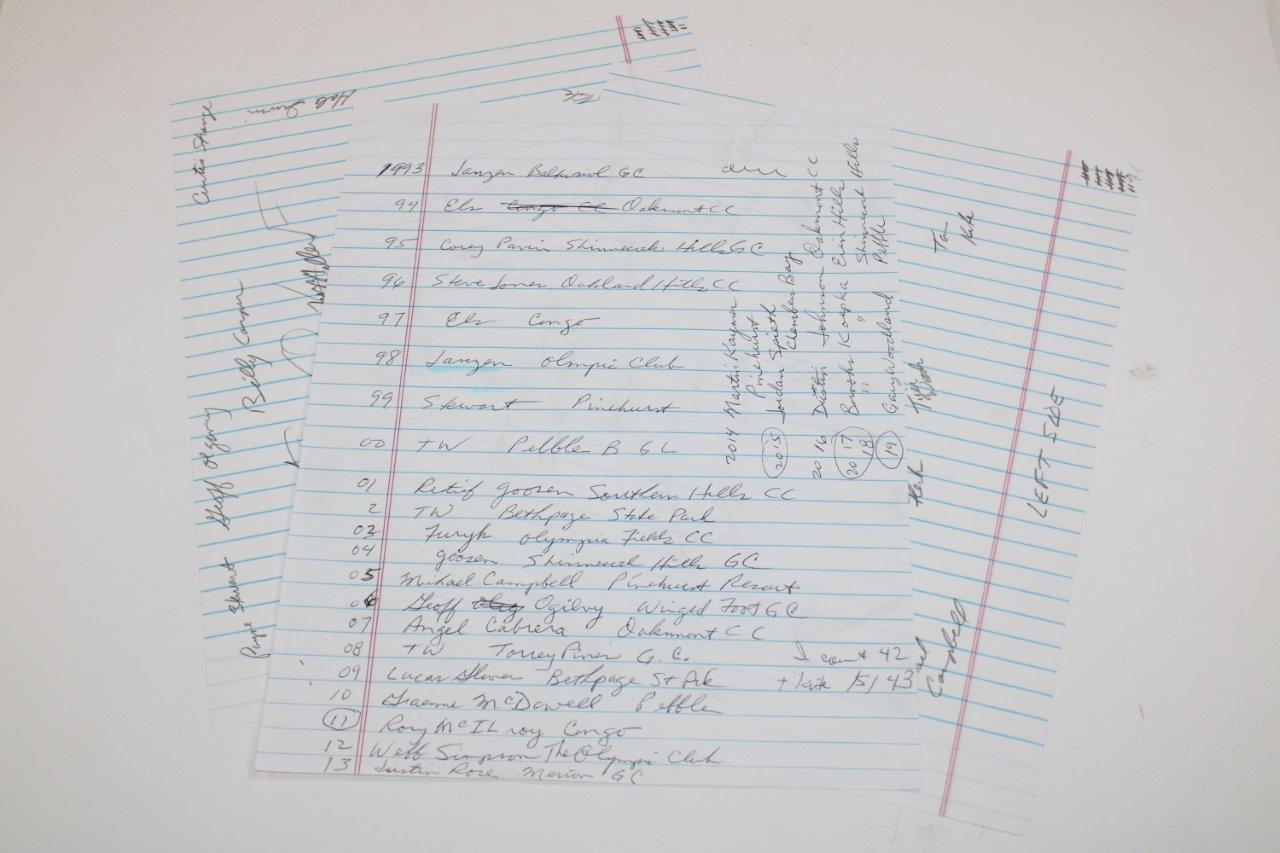 1993 Janzen Baltusrol GC
94 Els Congo CC Oakmont CC
95 Corey Pavin Shinnecock Hills GC
96 Steve Jones Oakland Hills CC
97 Els Congo
98 Janzen Olympic Club
99 Stewart Pinehurst
00 TW Pebble B GL
01 Retief Goosen Southern Hills CC
2 TW Bethpage State Park
03 Furyk Olympia Fields CC
04 Goosen Shinnecock Hills GC
05 Michael Campbell Pinehurst Resort
06 Geoff Ogilvy Winged Foot GC
07 Angel Cabrera Oakmont CC
08 TW Torrey Pines G.C.
09 Lucas Glover Bethpage St Pk
10 Graeme McDowell Pebble
11 Rory McILroy Congo
12 Webb Simpson The Olympic Club
13 Justin Rose Merion GC
I count 42
43
2014 Martin Kaymer
Pinehurst
2015 Jordan Spieth
Chamber Bay
2016 Dustin Johnson Oakmont CC
2017 Brooks Koepka Erin Hills
18 " " Shinnecock Hills
19 Gary Woodland Pebble
Curtis Strange
Hale Irwin
Billy Casper
Geoff Ogilvy
Payne Stewart
Tom
Kite
Campbell
LEFT SIDE